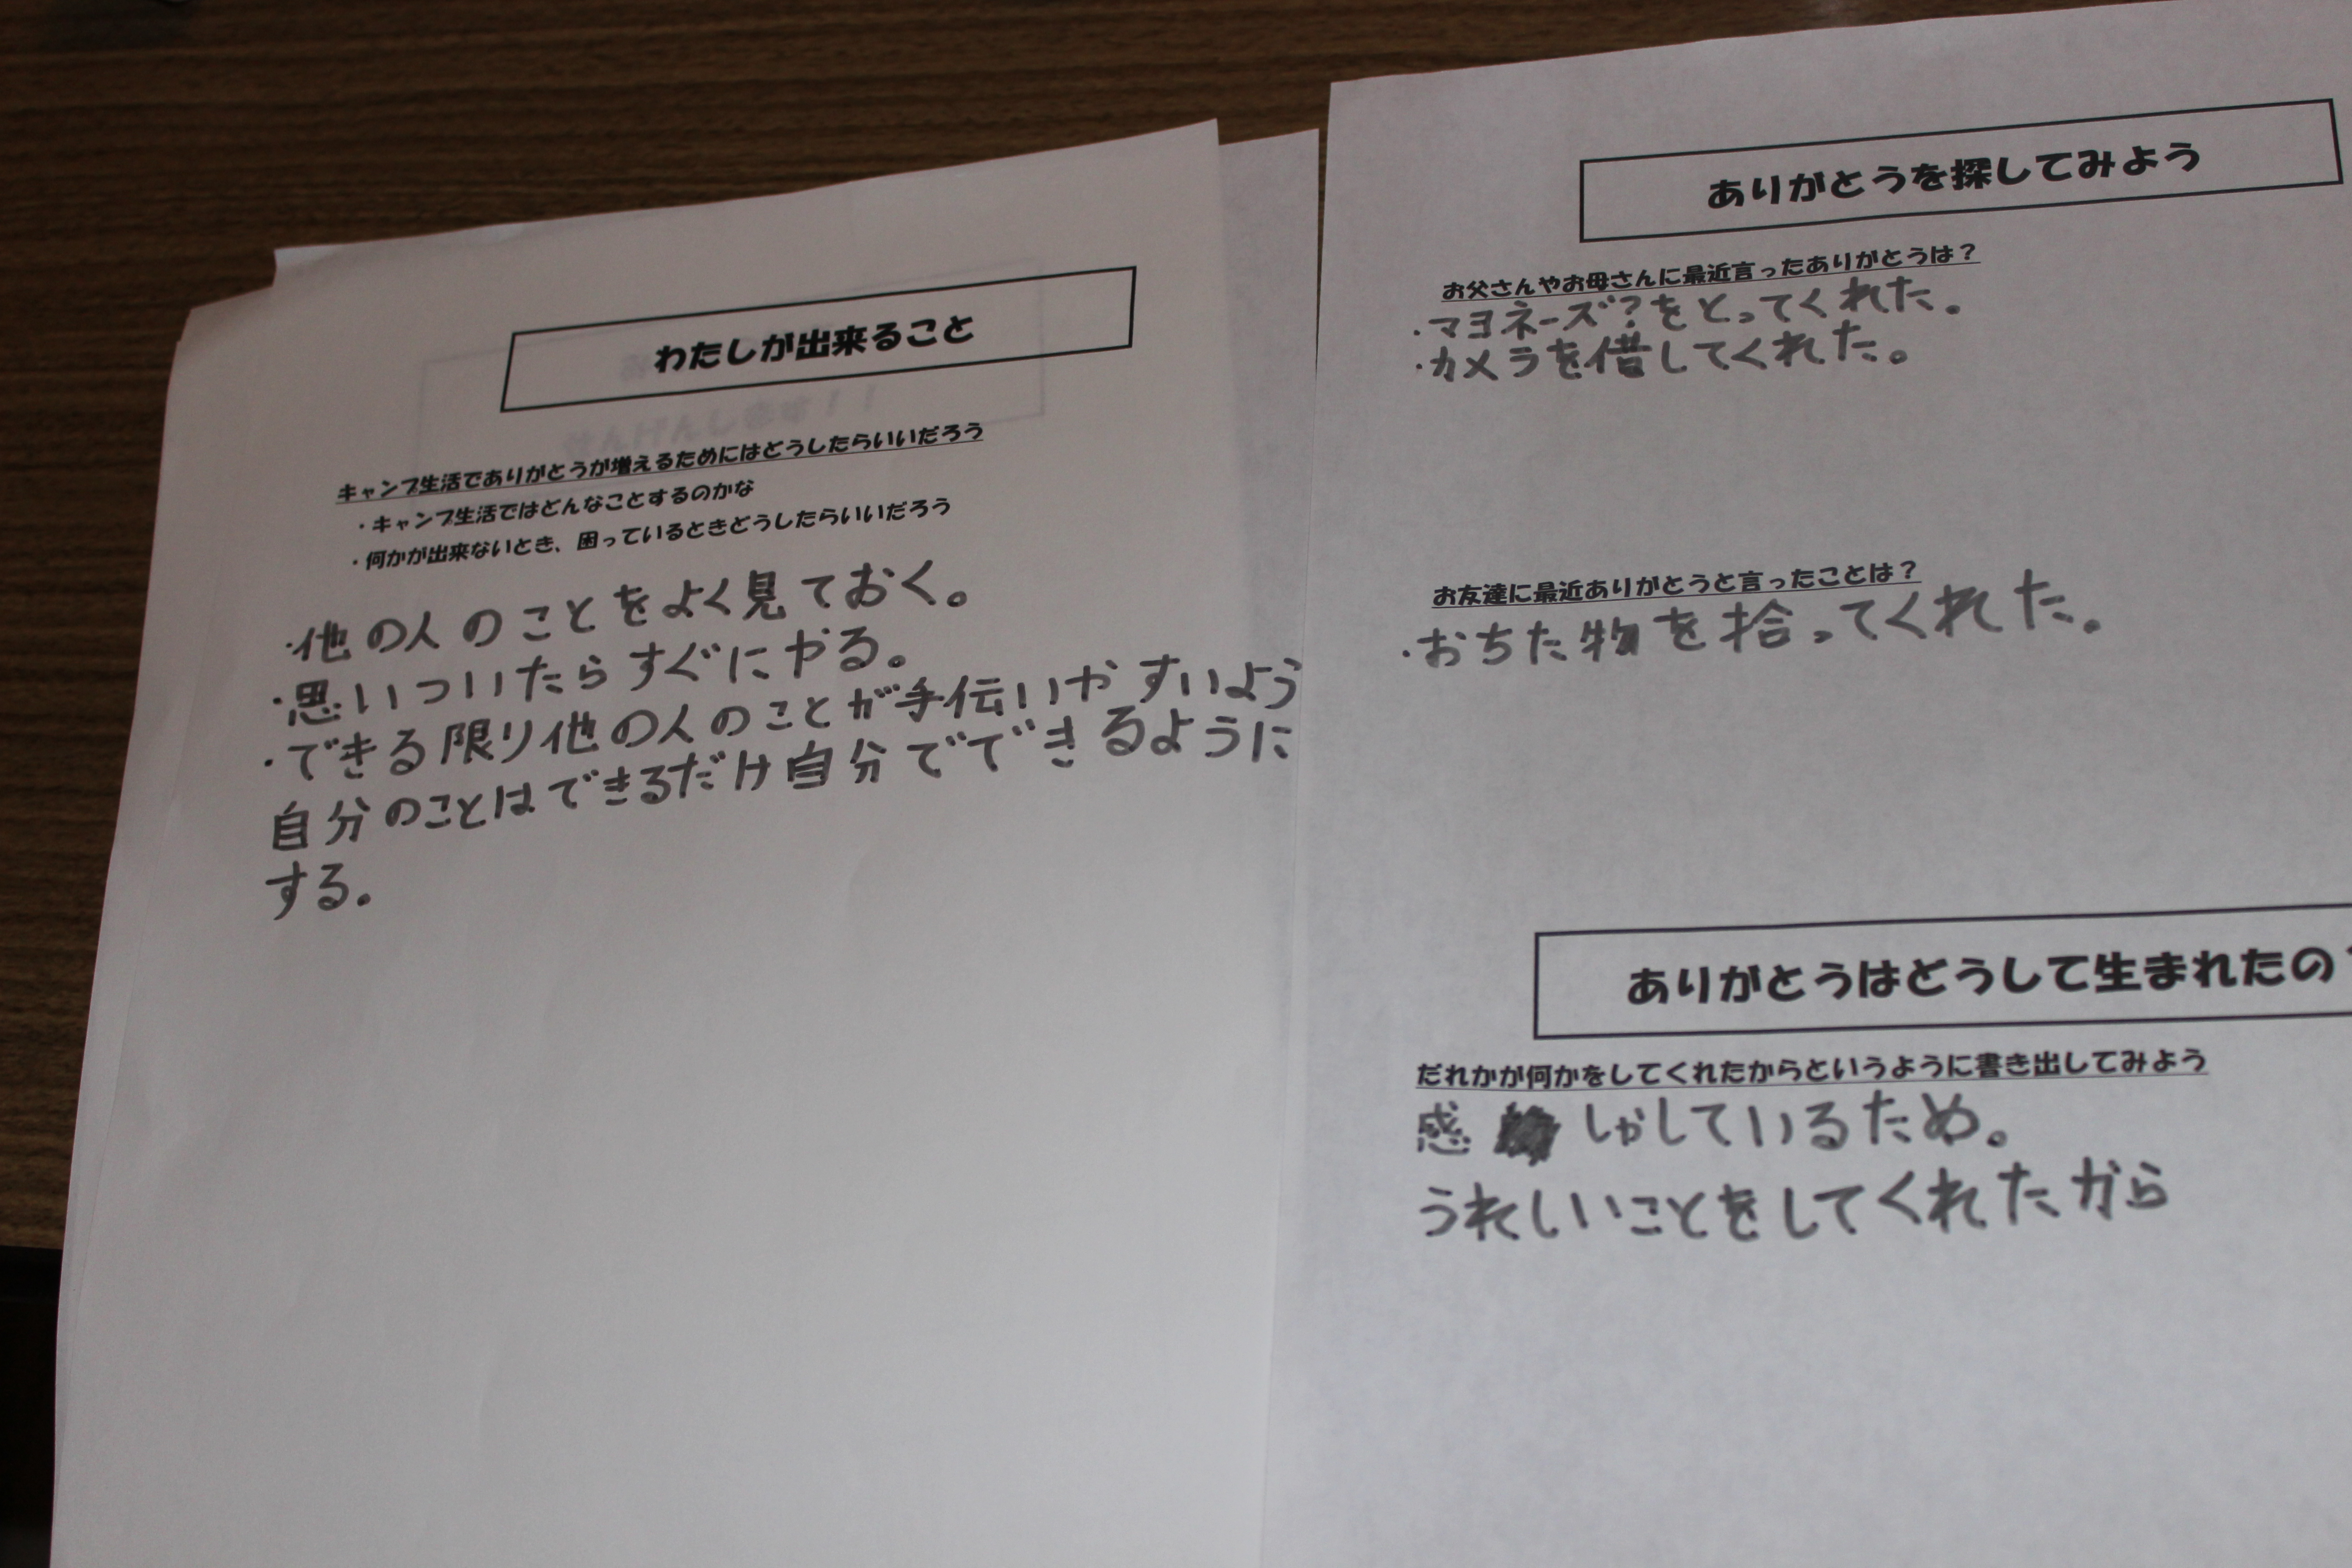 わたしが出来ること
キャンプ生活でありがとうが増えるためにはどうしたらいいだろう
・キャンプ生活ではどんなことするのかな
・何かが出来ないとき、困っているときどうしたらいいだろう
・他の人のことをよく見ておく。
・思いついたらすぐにやる。
・できる限り他の人のことが手伝いやすいよう
自分のことはできるだけ自分でできるように
する。
ありがとうを探してみよう
お父さんやお母さんに最近言ったありがとうは？
・マヨネーズ?をとってくれた。
・カメラを借してくれた。
お友達に最近ありがとうと言ったことは？
・おちた物を拾ってくれた。
ありがとうはどうして生まれたの
だれかが何かをしてくれたからというように書き出してみよう
感しゃしているため。
うれしいことをしてくれたから